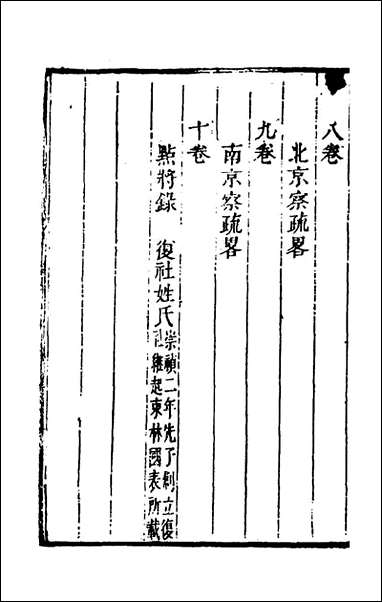 八卷
北京察疏畧
九卷
南京察疏畧
十卷
點將錄　復社姓氏崇禎二年先子剏立復
社繼起東林國表所載